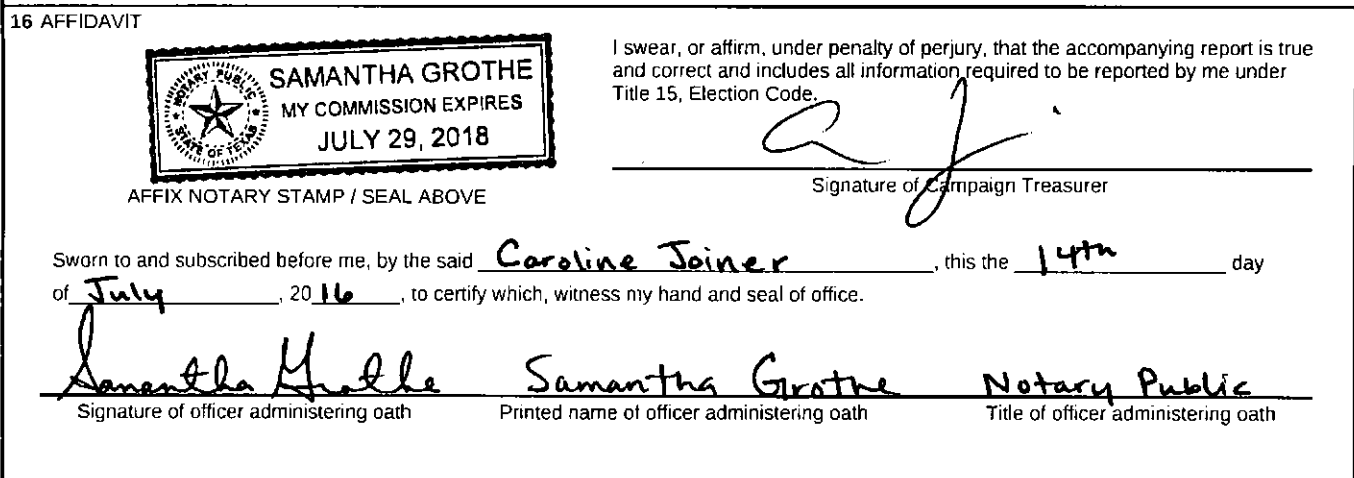 16 AFFIDAVIT
NOTARY PUBLIC
STATE OF TEXAS
SAMANTHA GROTHE
MY COMMISSION EXPIRES
JULY 29, 2018
AFFIX NOTARY STAMP / SEAL ABOVE
I swear, or affirm, under penalty of perjury, that the accompanying report is true
and correct and includes all information required to be reported by me under
Title 15, Election Code.
Signature of Campaign Treasurer
Sworn to and subscribed before me, by the said Caroline Joiner, this the 14th day
of July, 2016, to certify which, witness my hand and seal of office.
Samantha Grothe Samantha Grothe Notary Public
Signature of officer administering oath Printed name of officer administering oath Title of officer administering oath